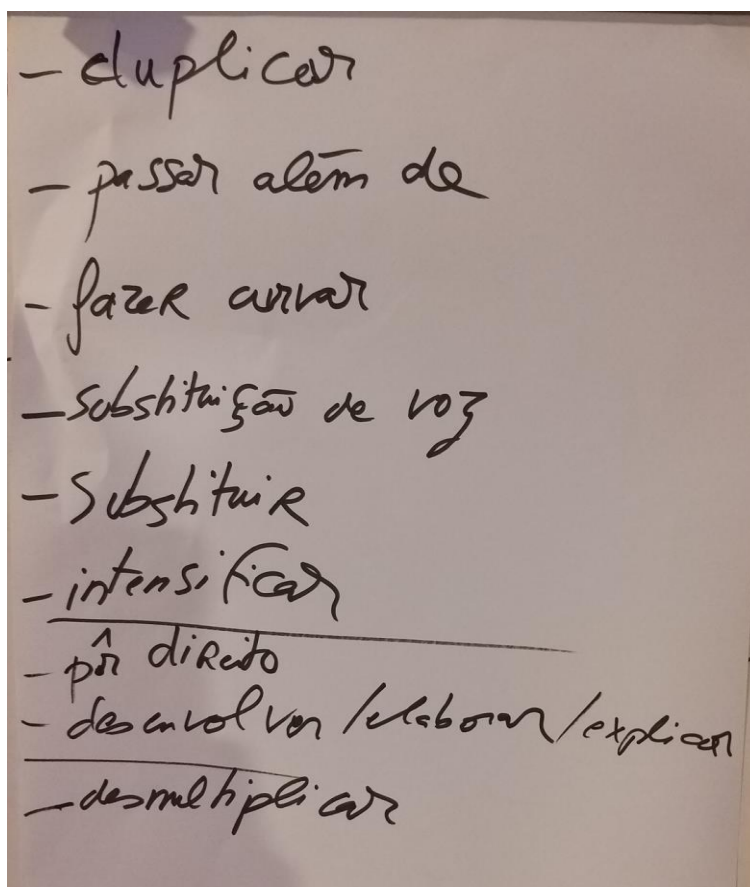 - duplicar
- passar além de
- fazer curvar
- substituição de voz
- Substituir
- intensificar
- pôr direito
- desenvolver/elaborar/explicar
- desmultiplicar